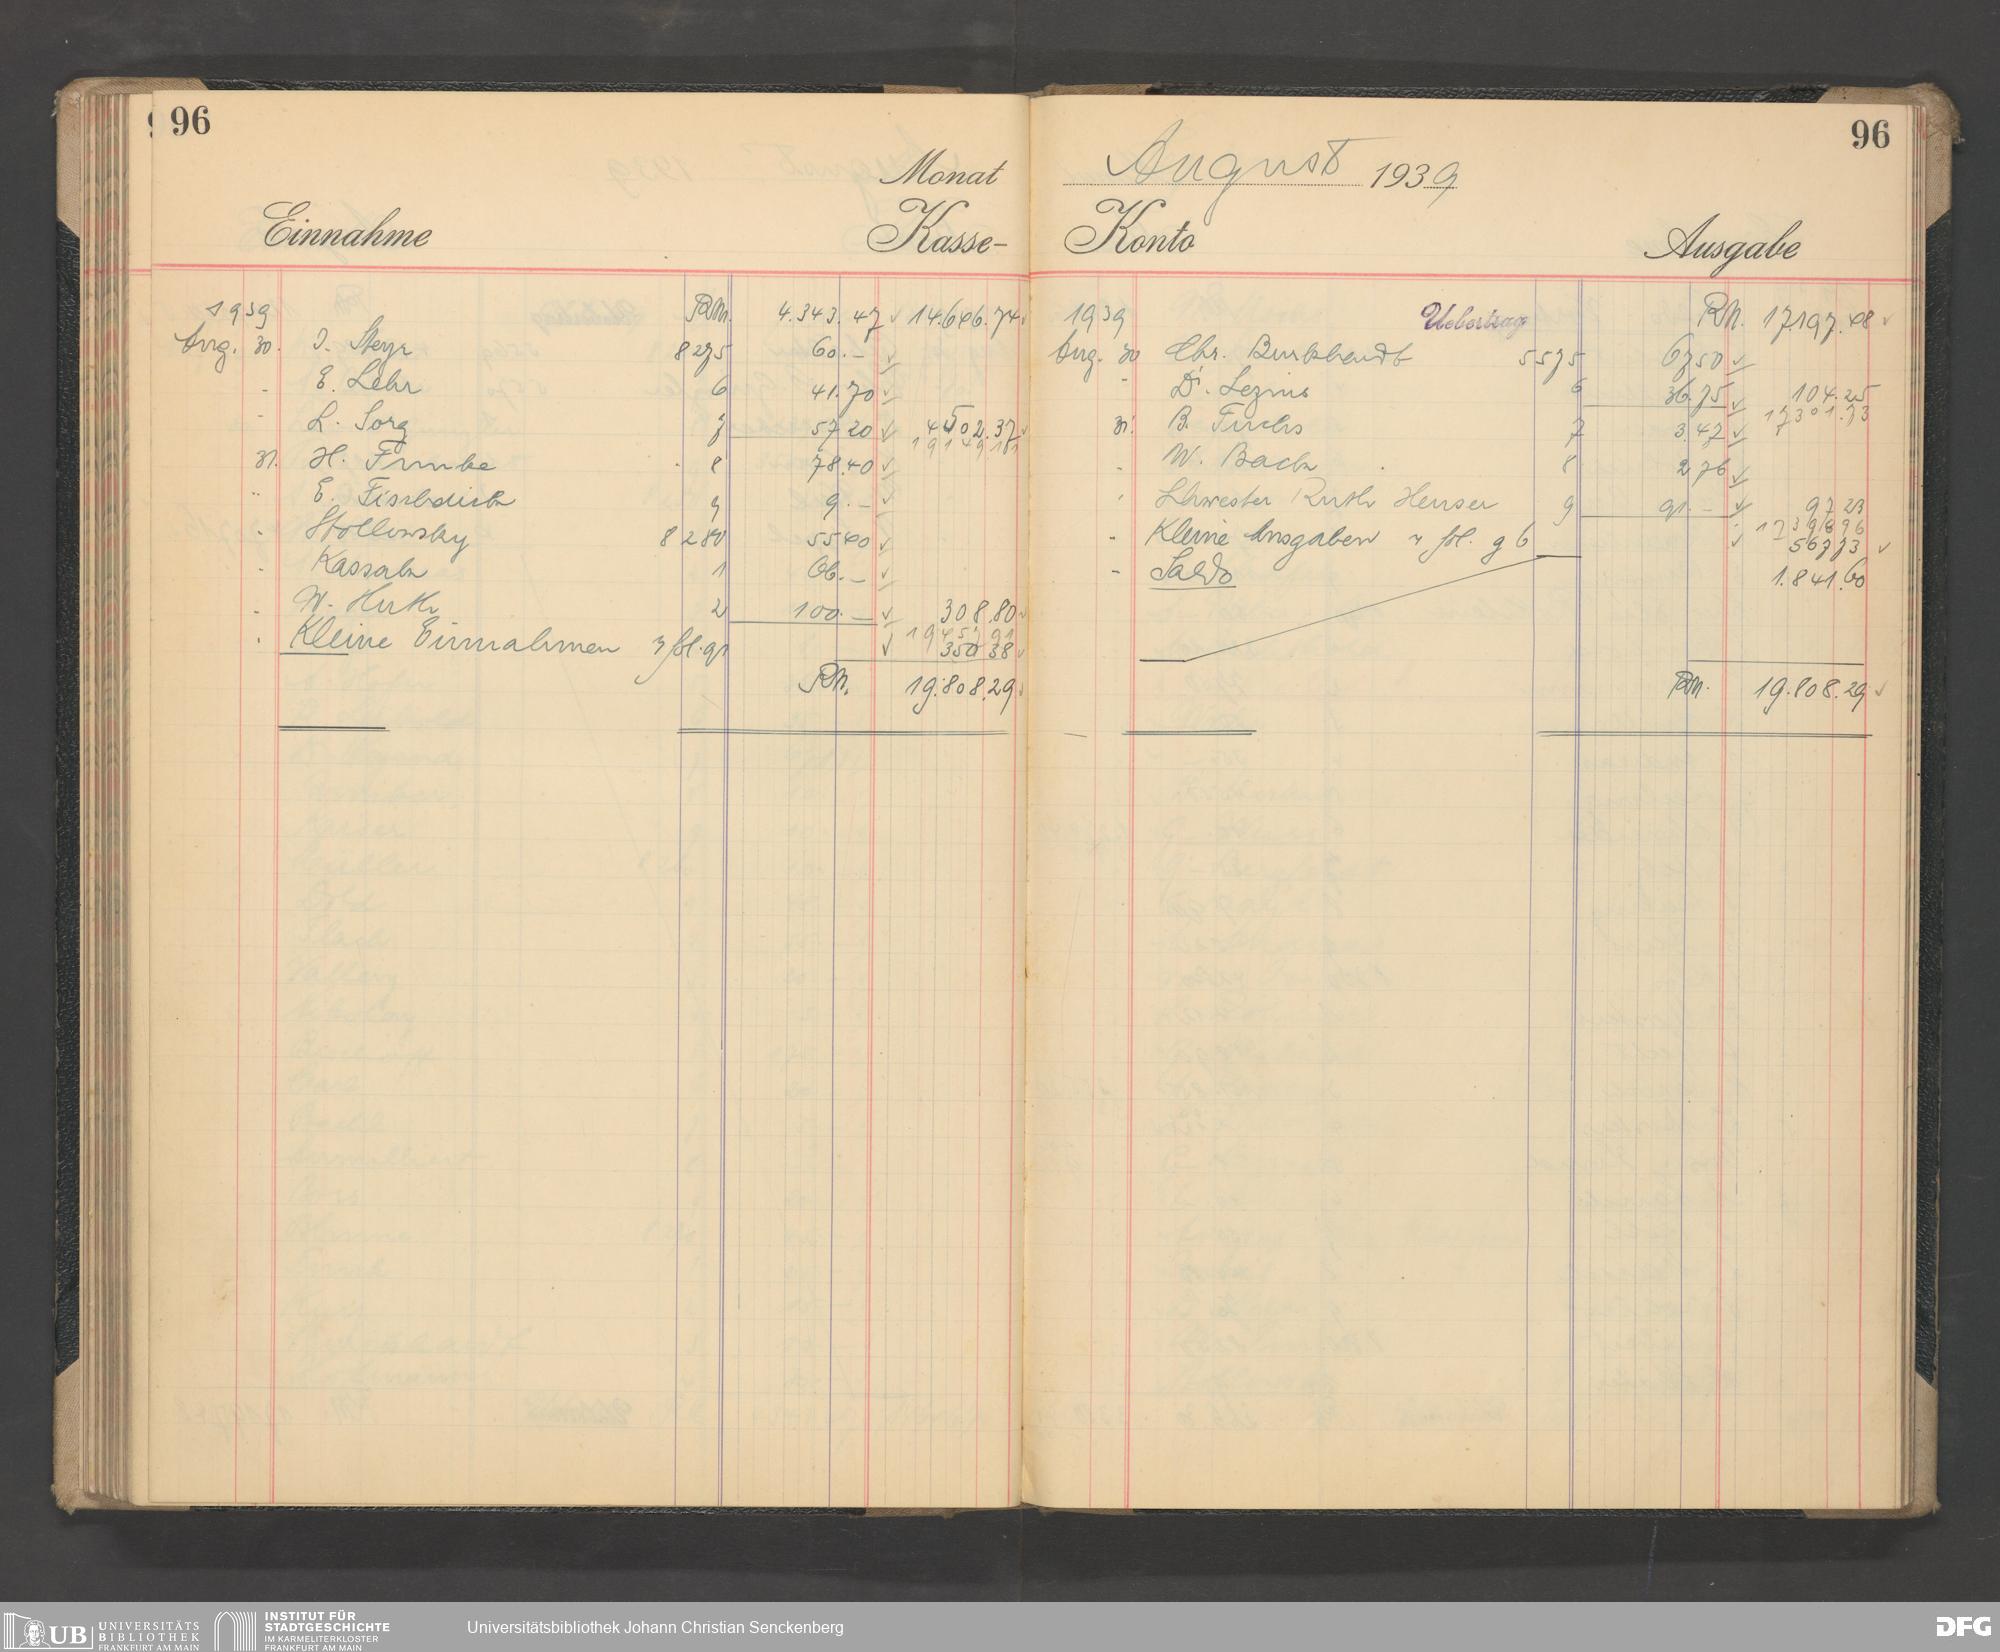 96
Monat
Einnahme Kasse-
1939 RM. 4.343.47 14.646.74
Aug. 30. J. Steyr 8275 60.–
" E. Lehr 6 41.70
" L. Sorg 7 57 20 4502.37
19149 11
31. H. Funke 8 78.40
" E. Fischdick 9 9.–
" Stollowsky 8280 55 40
" Kassak 1 66.–
" W. Huth 2 100.– 308.80
19457 91
" Kleine Einnahmen 350 38
RM. 19.808.29
96
August 1939
Konto Ausgabe
1939 Uebertrag RM. 17197.48
Aug. 30 Chr. Burkhardt 5575 67 50
" Dr. Lezius 6 36.75 104.25
17301.73
31. B. Fuchs 7 3.47
" W. Bach 8 2 76
" Schwester Ruth Heuser 9 91.– 97 23
17398 96
" Kleine Ausgaben 567 73
" Saldo 1.841.60
RM. 19.808.29
UB UNIVERSITÄTS
BIBLIOTHEK
FRANKFURT AM MAIN
INSTITUT FÜR
STADTGESCHICHTE
IM KARMELITERKLOSTER
FRANKFURT AM MAIN
Universitätsbibliothek Johann Christian Senckenberg
DFG